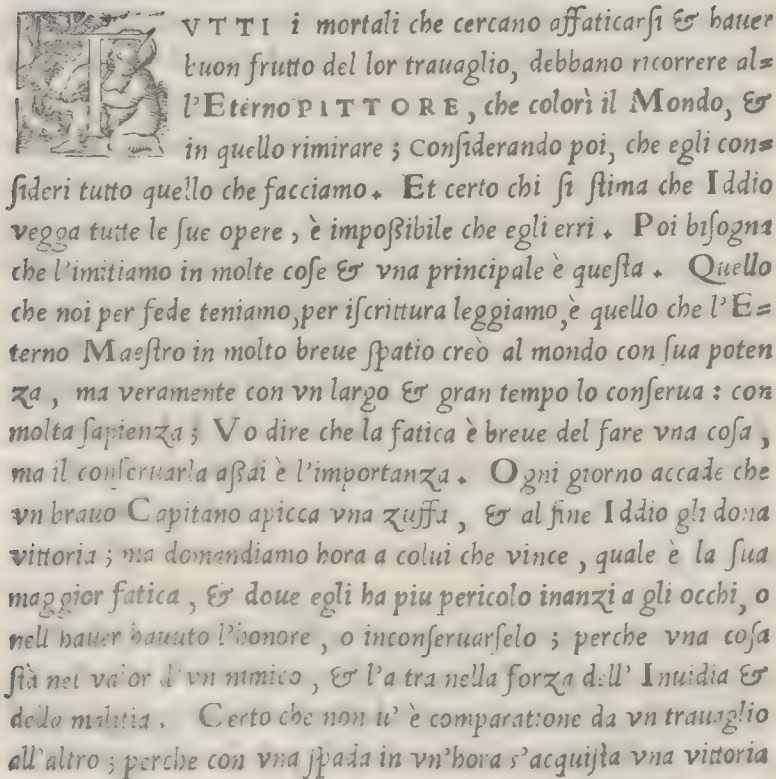 TVTTI i mortali che cercano affaticarſi & hauer
buon frutto del lor trauaglio, debbano ricorrere al=
l'Eterno PITTORE, che colorì il Mondo, &
in quello rimirare; Conſiderando poi, che egli con=
ſideri tutto quello che facciamo. Et certo chi ſi ſtima che Iddio
vegga tutte le ſue opere, è impoſſibile che egli erri. Poi biſogna
che l'imitiamo in molte coſe & vna principale è queſta. Quello
che noi per fede teniamo, per iſcrittura leggiamo, è quello che l'E=
terno Maeſtro in molto breue ſpatio creò al mondo con ſua poten
za, ma veramente con vn largo & gran tempo lo conſerua: con
molta ſapienza; Vo dire che la fatica è breue del fare vna coſa,
ma il conſeruarla aſſai è l'importanza. Ogni giorno accade che
vn brauo Capitano apicca vna zuffa, & al fine Iddio gli dona
vittoria; ma domandiamo hora a colui che vince, quale è la ſua
maggior fatica, & doue egli ha piu pericolo inanzi a gli occhi, o
nell hauer hauuto l'honore, o inconſeruarſelo; perche vna coſa
ſtà nel valor d'vn nimico, & l'altra nella forza dell' Inuidia &
della malitia. Certo che non u' è comparatione da vn trauaglio
all'altro; perche con vna ſpada in vn'hora s'acquiſta vna vittoria